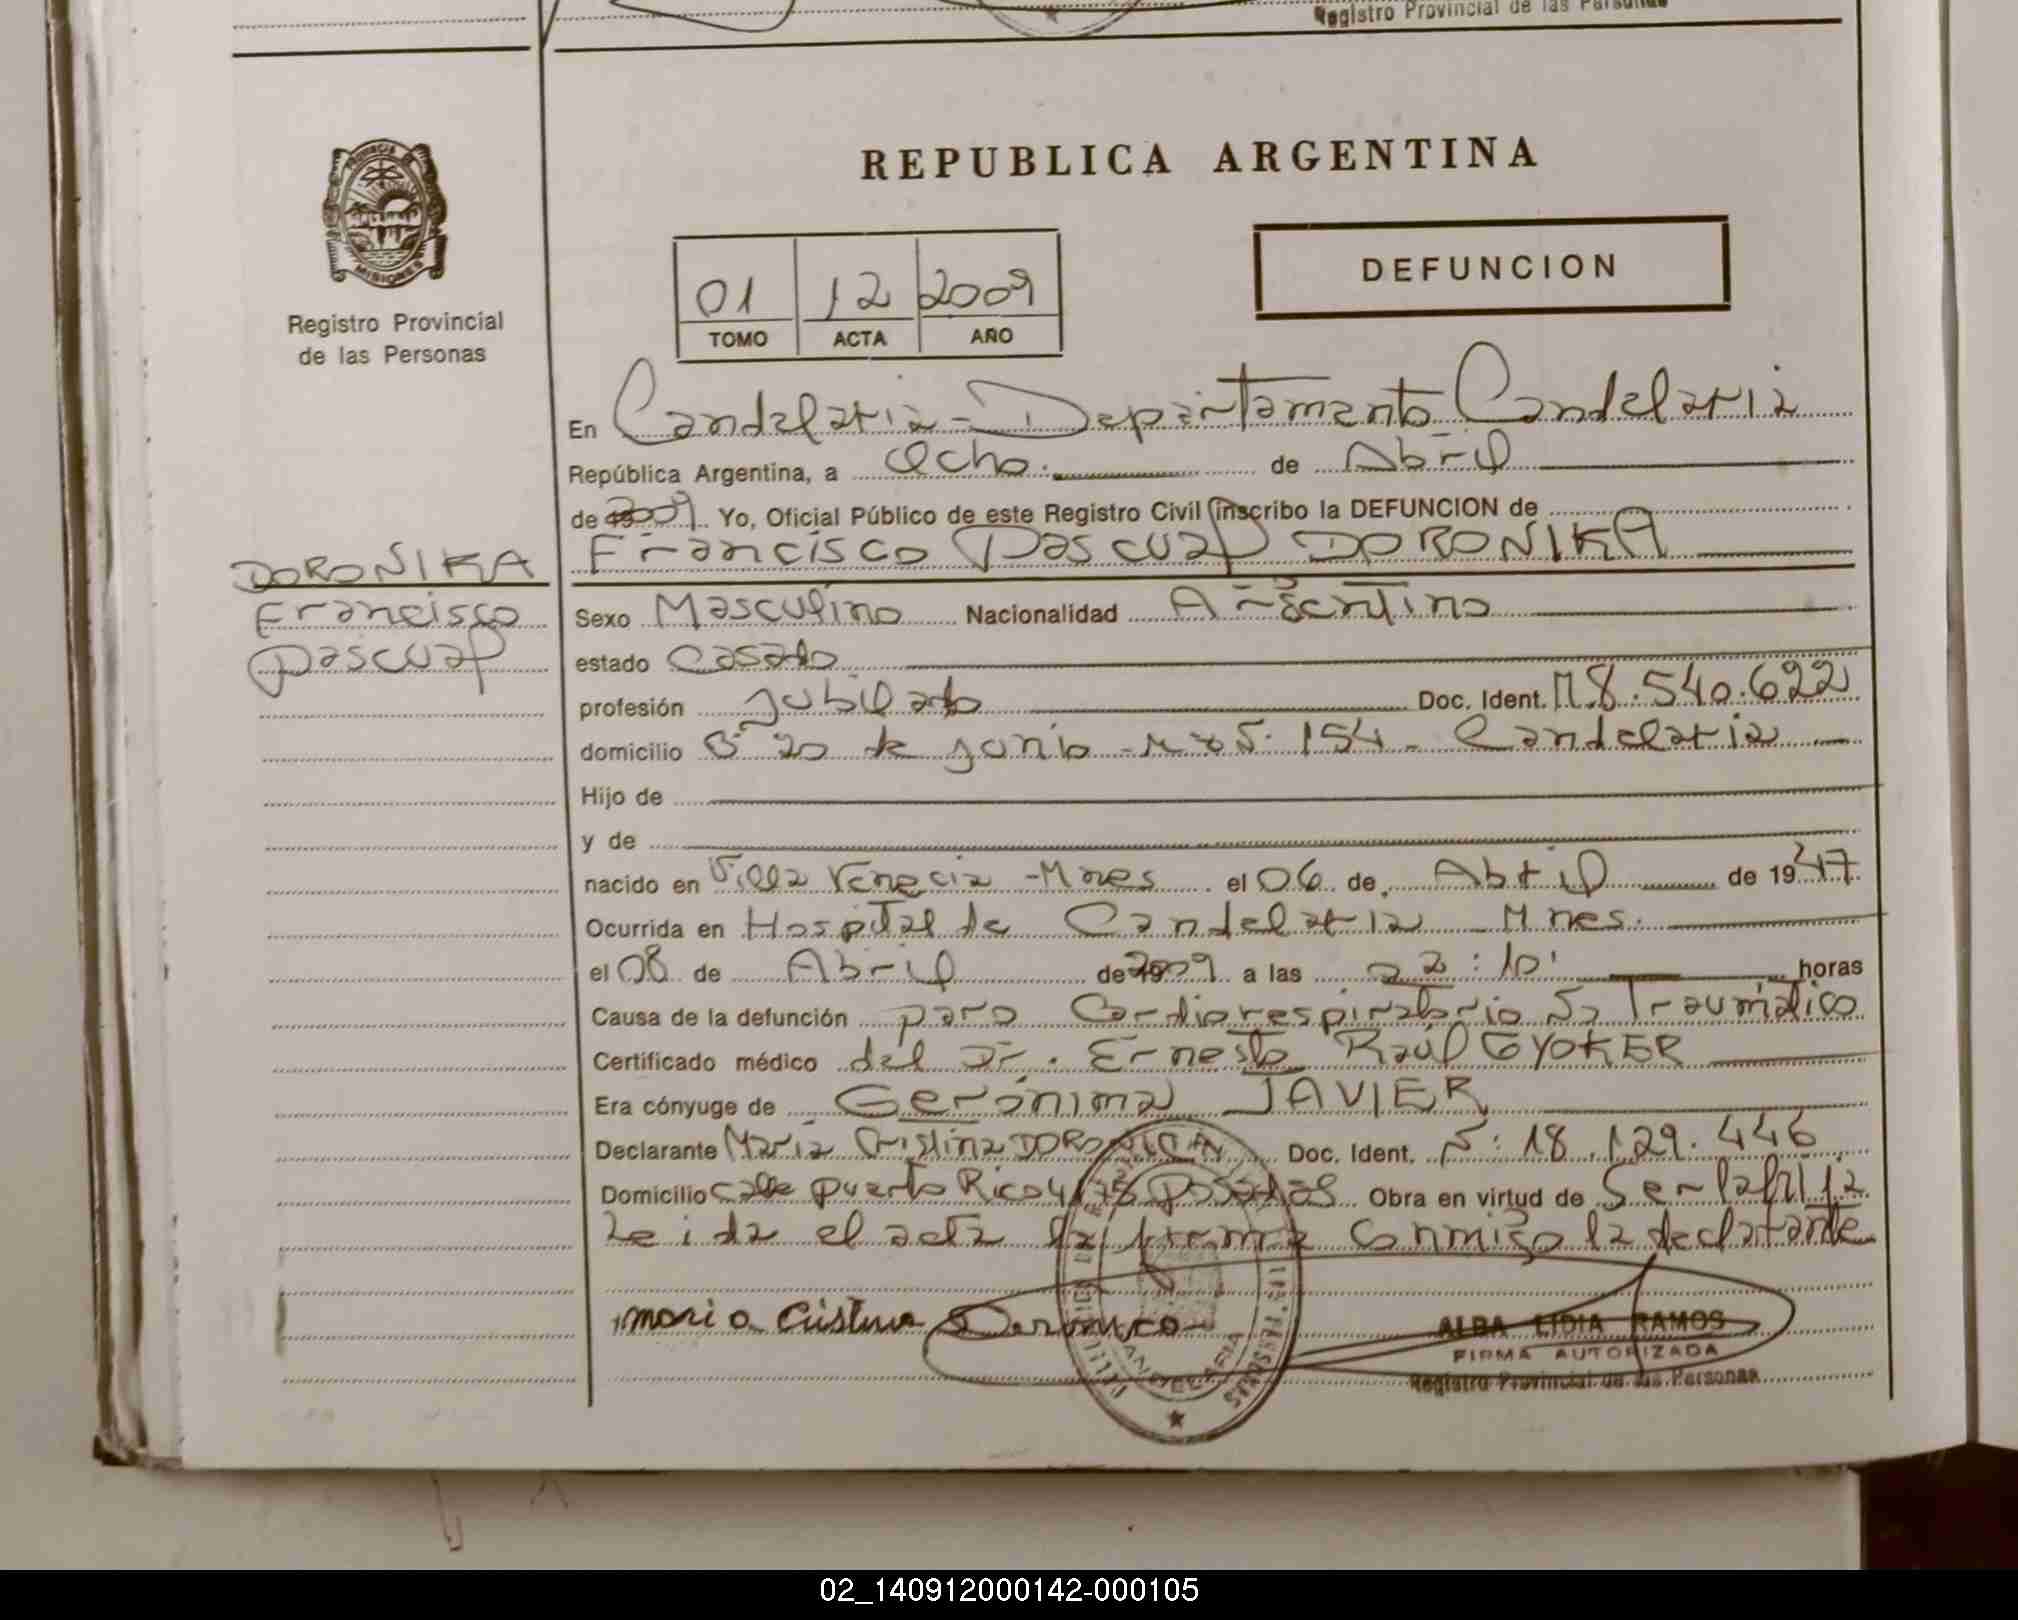 Registro Provincial de las Personas
PROVINCIA DE
MISIONES
Registro Provincial
de las Personas
REPUBLICA ARGENTINA
01 12 2009
TOMO ACTA AÑO
DEFUNCION
En Candelaria - Departamento Candelaria
República Argentina, a Ocho. de Abril
de 2009 Yo, Oficial Público de este Registro Civil inscribo la DEFUNCION de
Francisco Pascual DOROÑIKA
DOROÑIKA
Francisco
Pascual
Sexo Masculino Nacionalidad Argentino
estado Casado
profesión Jubilado Doc. Ident. M.8.540.622
domicilio Bº 20 de Junio - 154 - Candelaria
Hijo de
y de
nacido en Villa Venecia - Mnes el 06 de Abril de 1947
Ocurrida en Hospital de Candelaria - Mnes.
el 08 de Abril de 2009 a las 22:10' horas
Causa de la defunción paro Cardiorespiratorio No Traumático
Certificado médico del Dr. Ernesto Raúl GYOKER
Era cónyuge de Gerónima JAVIER
Declarante María Cristina Doc. Ident. Nº: 18.129.446
Domicilio calle puerto Rico Posadas Obra en virtud de Ser la hija
Leida el acta la firma conmigo la declarante
maria Cristina
CANDELARIA
LAS PERSONAS
ALBA LIDIA RAMOS
FIRMA AUTORIZADA
Registro Provincial de las Personas
02_140912000142-000105